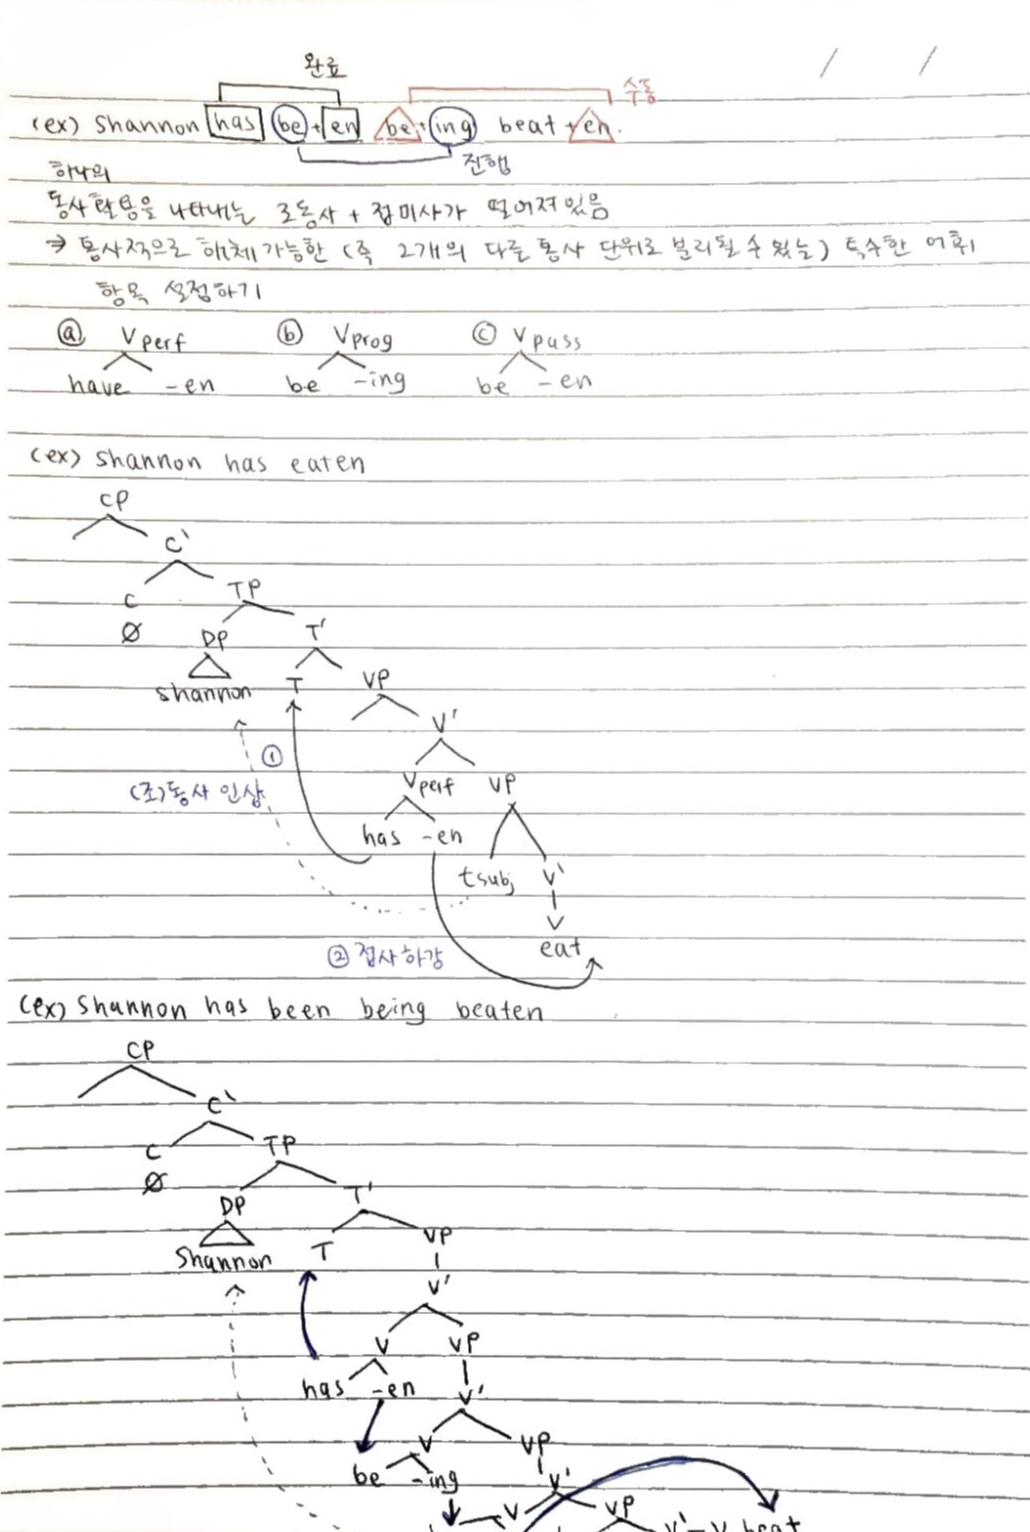 완료
수동
(ex) Shannon has be+en be+ing beat+en.
진행
하나의
동사활용을 나타내는 조동사 + 접미사가 떨어져있음
⇒ 통사적으로 해체가능한 (즉 2개의 다른 통사 단위로 분리될 수 있는) 특수한 어휘
항목 설정하기
ⓐ Vperf ⓑ Vprog ⓒ Vpass
have -en be -ing be -en
(ex) Shannon has eaten
CP
C'
C TP
Ø DP T'
Shannon T VP
V'
①
Vperf VP
(조)동사 인상
has -en
tsubj V'
V
②접사하강 eat
(ex) Shannon has been being beaten
CP
C'
C TP
Ø
DP T'
Shannon T VP
V'
V VP
has -en V'
V VP
be -ing V'
V VP
V'-V beat